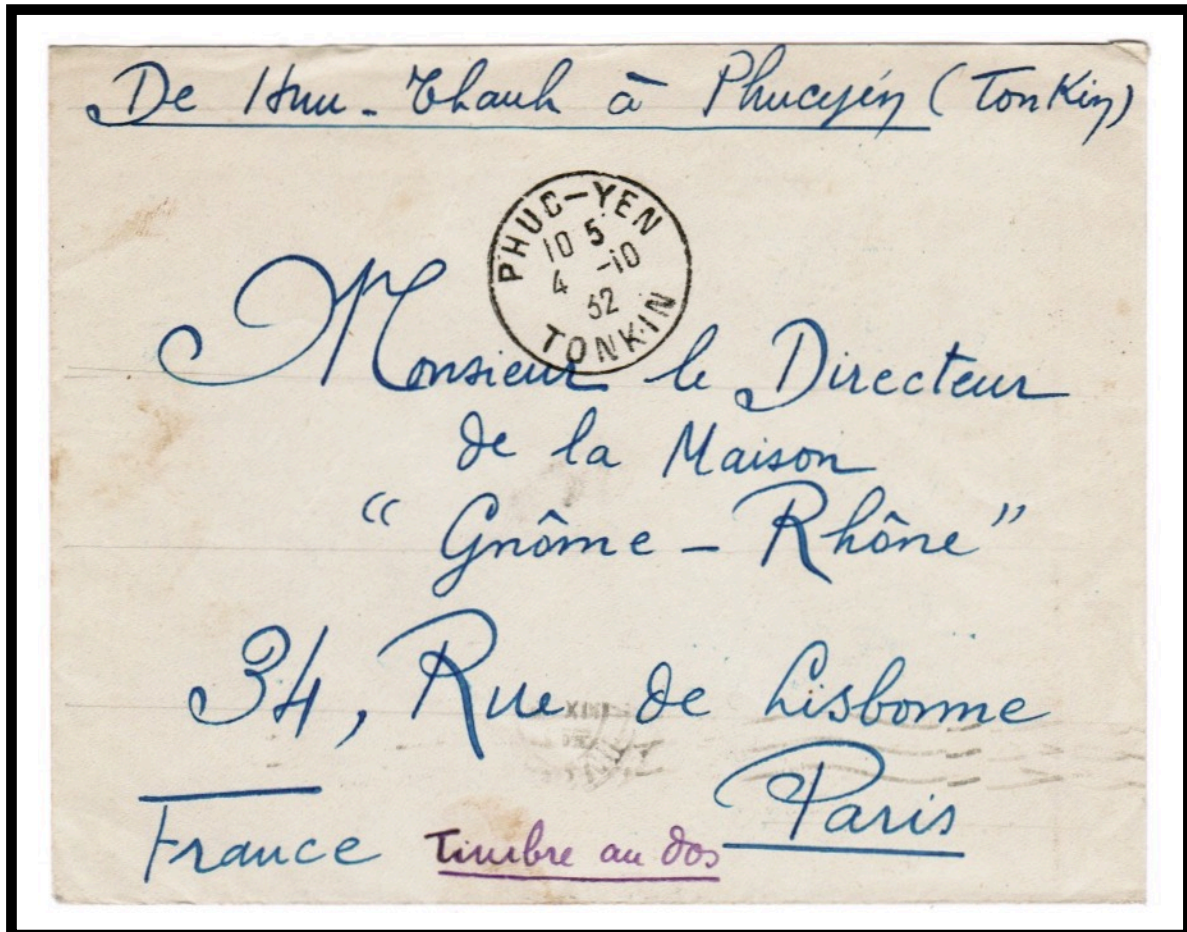 De Huu - Thanh à Phucyên (TonKin)
PHUC-YEN
10 5
4 -10
32
TONKIN
Monsieur le Directeur
de la Maison
“ Gnôme - Rhône ”
34, Rue de Lisbonne
Paris
France
Timbre au dos